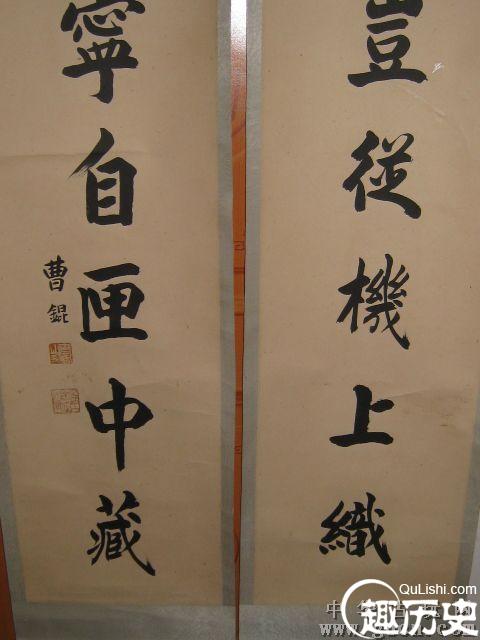 豈從機上織
寧自匣中藏
曹錕
QuLishi.com
趣历史